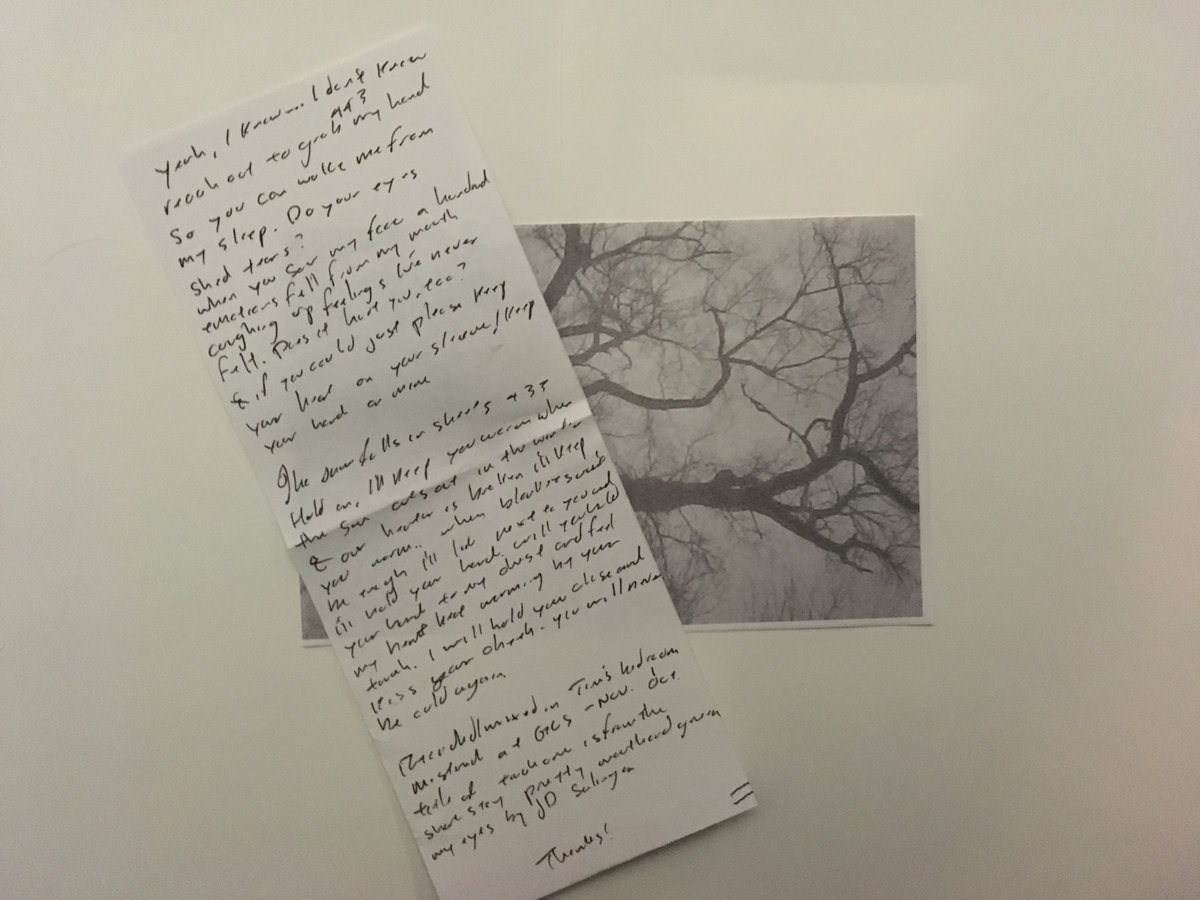 Yeah, I know... I don't know
443
reach out to grab my hand
So you can wake me from
my sleep. Do your eyes
shed tears?
when you saw my face a hundred
emotions fell from my mouth
coughing up feelings I've never
felt. Does it hurt you, too?
& if you could just please keep
your heart on your sleeve/keep
your hand on mine
The snow falls in sheets 435
Hold on, I'll keep you warm when
the sun goes out in the winter
& our heater is broken i'll keep
you warm. when blankets won't
be enough i'll lie next to you and
i'll hold your hand. will you hold
your hand to my chest and feel
my heart beat warming by your
touch. I will hold you close and
kiss your cheek. you will never
be cold again
Recorded/mixed in Tim's bedroom
mastered at GCS - Nov. Oct.
title of track one is from the
short story pretty mouth and green
my eyes by JD Salinger
Thanks!